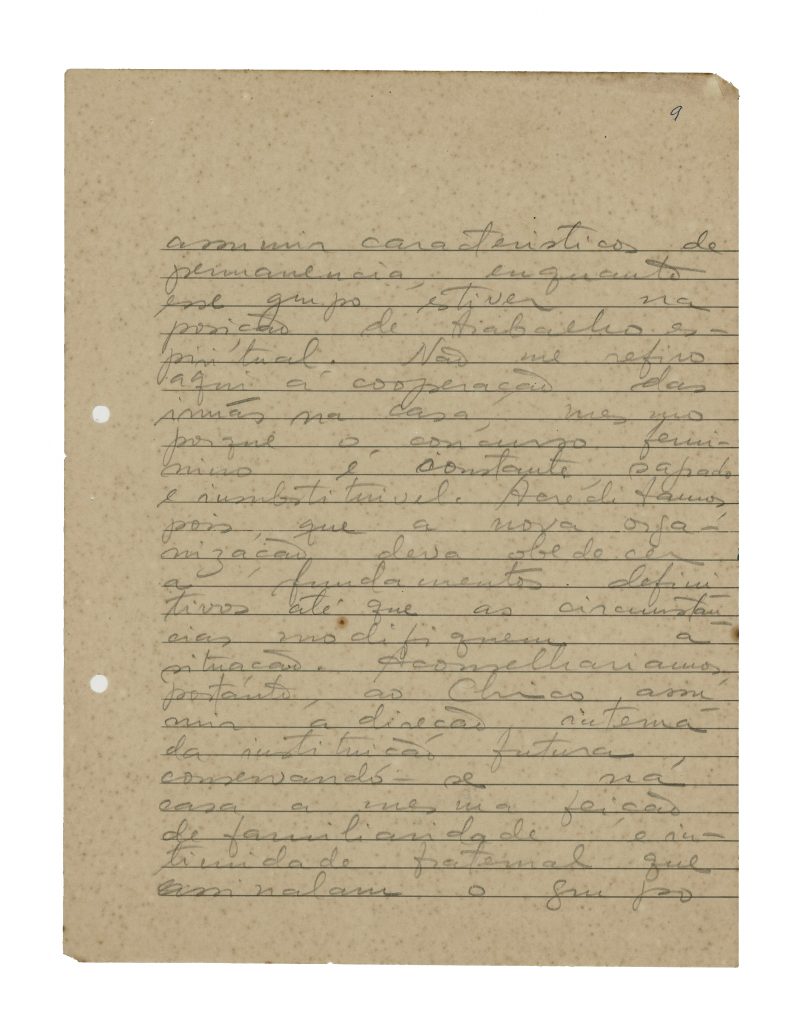 9
assumir caracteristicos de
permanencia, enquanto
esse grupo estiver na
posição de trabalho es-
piritual. Não me refiro
aqui á cooperação das
irmãs na casa, mesmo
porque o concurso femi-
nino é constante, sagrado
e insubstituivel. Acreditamos,
pois, que a nova orga-
nização deva obedecer
a fundamentos defini
tivos até que as circunstan
cias modifiquem a
situação. Aconselhariamos,
portanto, ao Chico assu
mir a direção interna
da instituição futura,
conservando-se na
casa a mesma feição
de familiaridade e in-
timidade fraternal que
assinalam o grupo